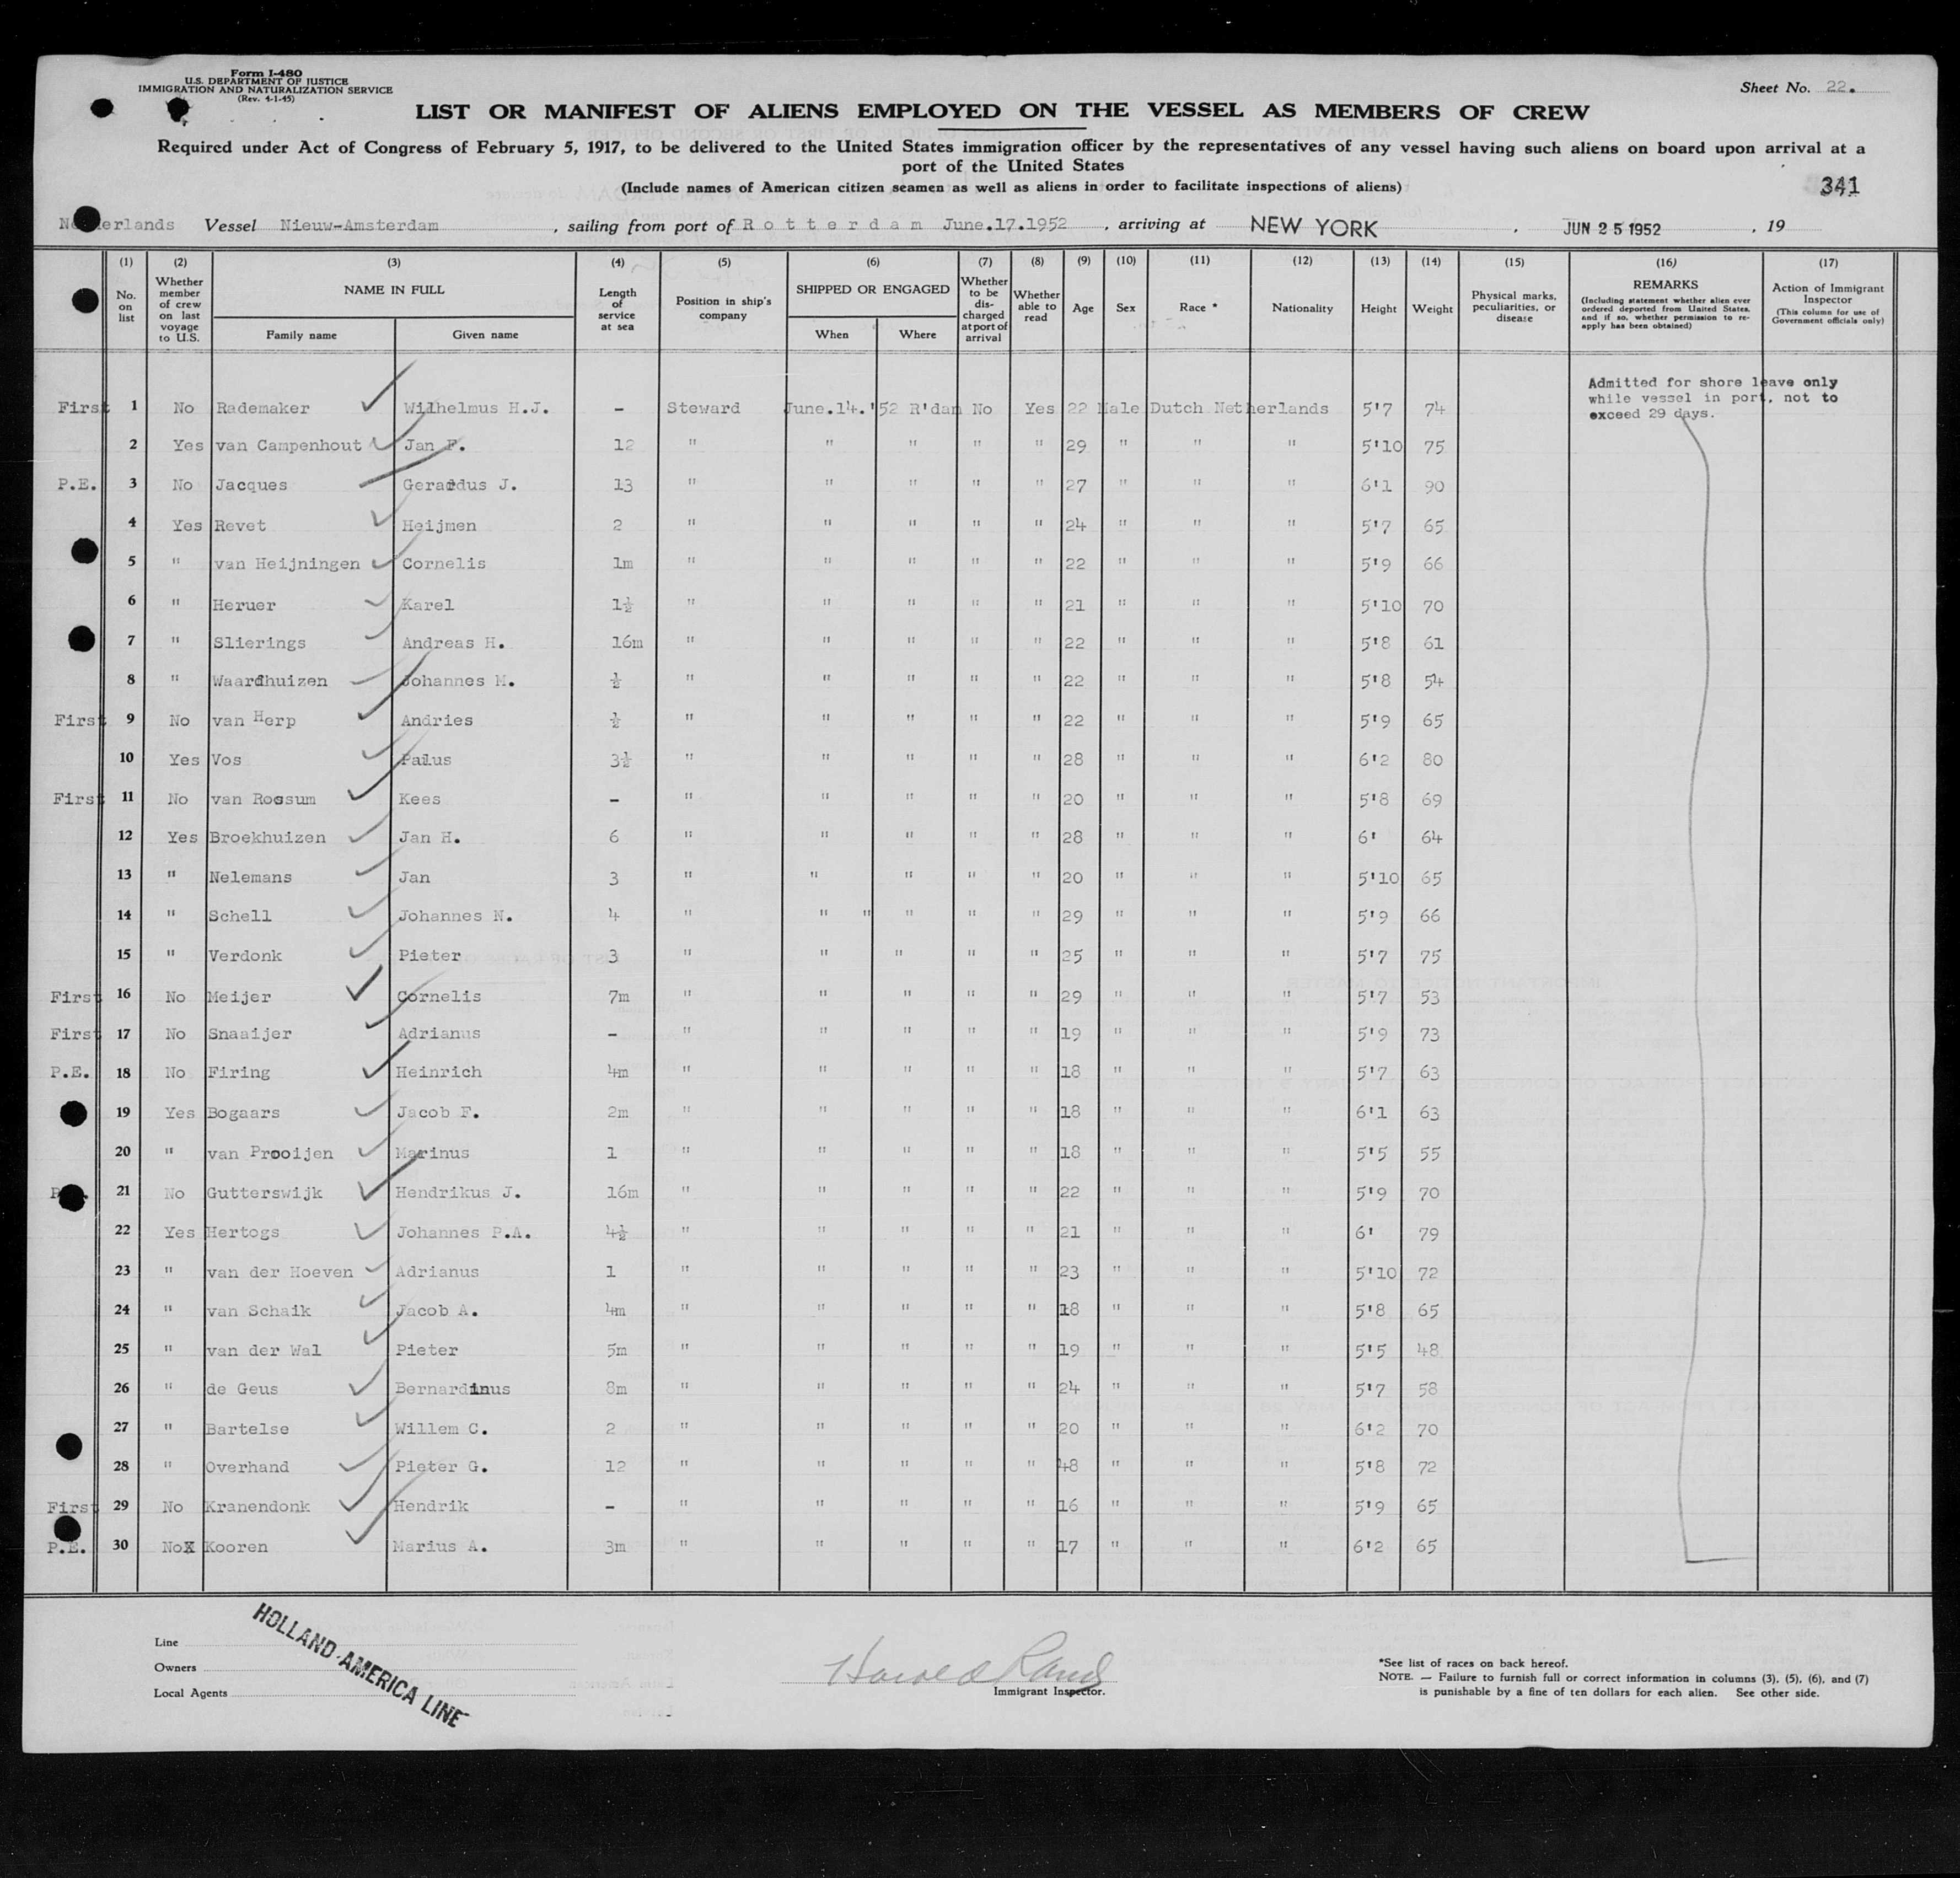 Form I-480
U.S. DEPARTMENT OF JUSTICE
IMMIGRATION AND NATURALIZATION SERVICE
(Rev. 4-1-45)
Sheet No. 22.
LIST OR MANIFEST OF ALIENS EMPLOYED ON THE VESSEL AS MEMBERS OF CREW
Required under Act of Congress of February 5, 1917, to be delivered to the United States immigration officer by the representatives of any vessel having such aliens on board upon arrival at a
port of the United States
(Include names of American citizen seamen as well as aliens in order to facilitate inspections of aliens)
341
Netherlands Vessel Nieuw-Amsterdam , sailing from port of Rotterdam June.17.1952 , arriving at NEW YORK , JUN 25 1952 , 19
(1) (2) (3) (4) (5) (6) (7) (8) (9) (10) (11) (12) (13) (14) (15) (16) (17)
No. on list
Whether member of crew on last voyage to U.S.
NAME IN FULL
Family name
Given name
Length of service at sea
Position in ship's company
SHIPPED OR ENGAGED
When
Where
Whether to be discharged at port of arrival
Whether able to read
Age
Sex
Race *
Nationality
Height
Weight
Physical marks, peculiarities, or disease
REMARKS
(Including statement whether alien ever ordered deported from United States, and if so, whether permission to reapply has been obtained)
Action of Immigrant Inspector
(This column for use of Government officials only)
Admitted for shore leave only
while vessel in port, not to
exceed 29 days.
First 1 No Rademaker Wilhelmus H.J. - Steward June.14.'52 R'dam No Yes 22 Male Dutch Netherlands 5'7 74
2 Yes van Campenhout Jan F. 12 " " " " " 29 " " " 5'10 75
P.E. 3 No Jacques Gerardus J. 13 " " " " " 27 " " " 6'1 90
4 Yes Revet Heijmen 2 " " " " " 24 " " " 5'7 65
5 " van Heijningen Cornelis 1m " " " " " 22 " " " 5'9 66
6 " Heruer Karel 1½ " " " " " 21 " " " 5'10 70
7 " Slierings Andreas H. 16m " " " " " 22 " " " 5'8 61
8 " Waardhuizen Johannes M. ½ " " " " " 22 " " " 5'8 54
First 9 No van Herp Andries ½ " " " " " 22 " " " 5'9 65
10 Yes Vos Palus 3½ " " " " " 28 " " " 6'2 80
First 11 No van Rossum Kees - " " " " " 20 " " " 5'8 69
12 Yes Broekhuizen Jan H. 6 " " " " " 28 " " " 6' 64
13 " Nelemans Jan 3 " " " " " 20 " " " 5'10 65
14 " Schell Johannes N. 4 " " " " " " 29 " " " 5'9 66
15 " Verdonk Pieter 3 " " " " " 25 " " " 5'7 75
First 16 No Meijer Cornelis 7m " " " " " 29 " " " 5'7 53
First 17 No Snaaijer Adrianus - " " " " " 19 " " " 5'9 73
P.E. 18 No Firing Heinrich 4m " " " " " 18 " " " 5'7 63
19 Yes Bogaars Jacob F. 2m " " " " " 18 " " " 6'1 63
20 " van Prooijen Marinus 1 " " " " " 18 " " " 5'5 55
21 No Gutterswijk Hendrikus J. 16m " " " " " 22 " " " 5'9 70
22 Yes Hertogs Johannes P.A. 4½ " " " " " 21 " " " 6' 79
23 " van der Hoeven Adrianus 1 " " " " " 23 " " " 5'10 72
24 " van Schaik Jacob A. 4m " " " " " 18 " " " 5'8 65
25 " van der Wal Pieter 5m " " " " " 19 " " " 5'5 48
26 " de Geus Bernardinus 8m " " " " " 24 " " " 5'7 58
27 " Bartelse Willem C. 2 " " " " " 20 " " " 6'2 70
28 " Overhand Pieter G. 12 " " " " " 48 " " " 5'8 72
First 29 No Kranendonk Hendrik - " " " " " 16 " " " 5'9 65
P.E. 30 NoX Kooren Marius A. 3m " " " " " 17 " " " 6'2 65
Line
Owners
Local Agents
HOLLAND-AMERICA LINE
Harold Rand
Immigrant Inspector.
*See list of races on back hereof.
NOTE. — Failure to furnish full or correct information in columns (3), (5), (6), and (7)
is punishable by a fine of ten dollars for each alien. See other side.